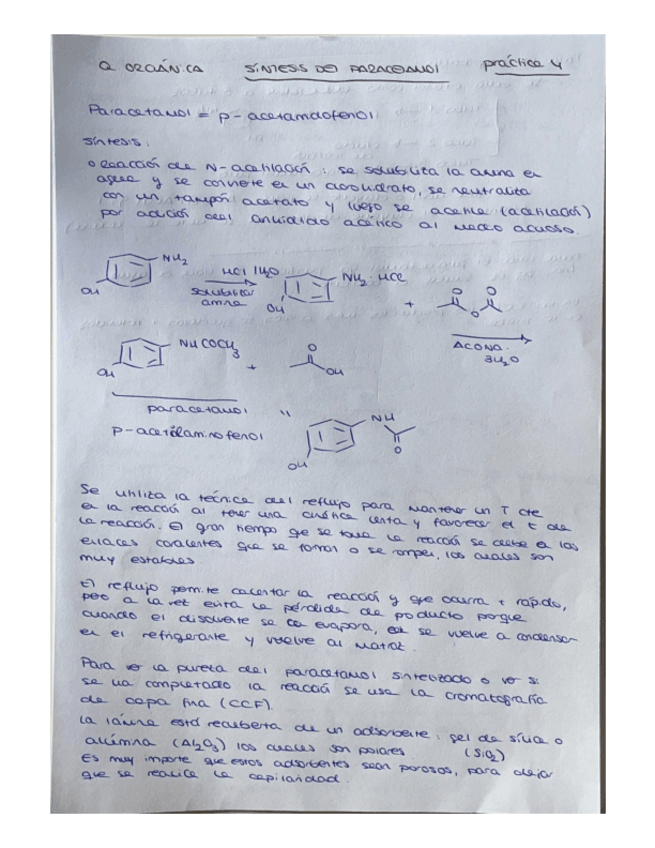 Q ORGÁNICA SÍNTESIS DEL PARACETAMOL práctica 4
Paracetamol = p-acetamidofenol
Síntesis:
Reacción de N-acetilación: se solubiliza la amina en
agua y se convierte en un clorohidrato, se neutraliza
con un tampón acetato y luego se acetila (acetilación)
por adición del anhidrido acético al medio acuoso.
NH2
HCl H2O
NH2 HCl
O O
OH
solubilizar
amina
OH
+
O
NHCOCH3
O
ACONa.
3H2O
OH
+
OH
paracetamol
"
NH
p-acetilaminofenol
O
OH
Se utiliza la técnica del reflujo para mantener un T cte
en la reacción al tener una cinética lenta y favorecer el t de
la reacción. El gran tiempo que se toma la reacción se debe a los
enlaces covalentes que se forman o se rompen, los cuales son
muy estables
El reflujo permite calentar la reacción y que ocurra + rápido,
pero a la vez evita la pérdida de producto porque
cuando el disolvente se evapora, se vuelve a condensar
en el refrigerante y vuelve al matraz.
Para ver la pureza del paracetamol sintetizado o ver si
se ha completado la reacción se usa la cromatografía
de capa fina (CCF).
La lámina está recubierta de un adsorbente: gel de sílice o
alúmina (Al2O3) los cuales son polares (SiO2)
Es muy importe que estos adsorbentes sean porosos, para dejar
que se realice la capilaridad.